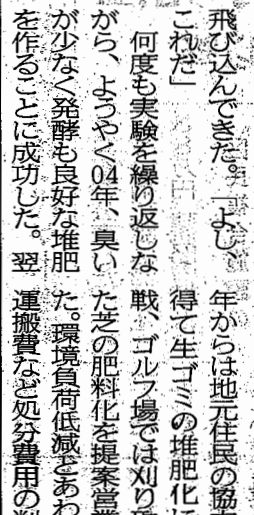 飛び込んできた。「よし、
これだ」
何度も実験を繰り返しな
がら、ようやく04年、臭い
が少なく発酵も良好な堆肥
を作ることに成功した。翌
年からは地元住民の協
得て生ゴミの堆肥化に
戦、ゴルフ場では刈り
た芝の肥料化を提案営
た。環境負荷低減とあわ
運搬費など処分費用の